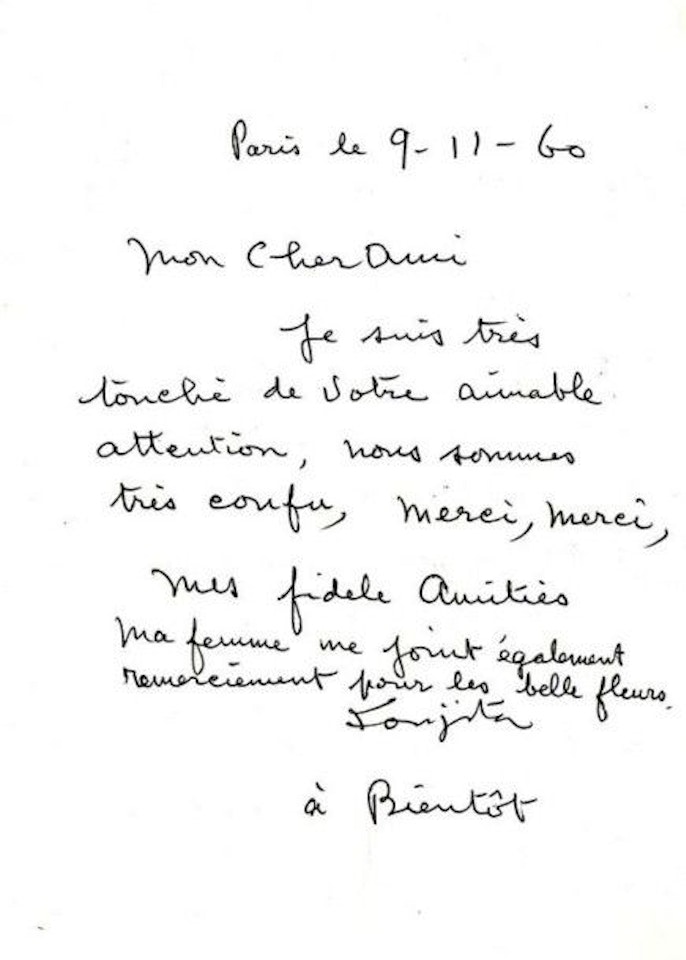 Paris le 9-11-60
Mon Cher Ami
Je suis très
touché de votre aimable
attention, nous sommes
très confu, merci, merci,
Mes fidele Amitiés
Ma femme me joint également
remerciement pour les belle fleurs.
à Bientôt